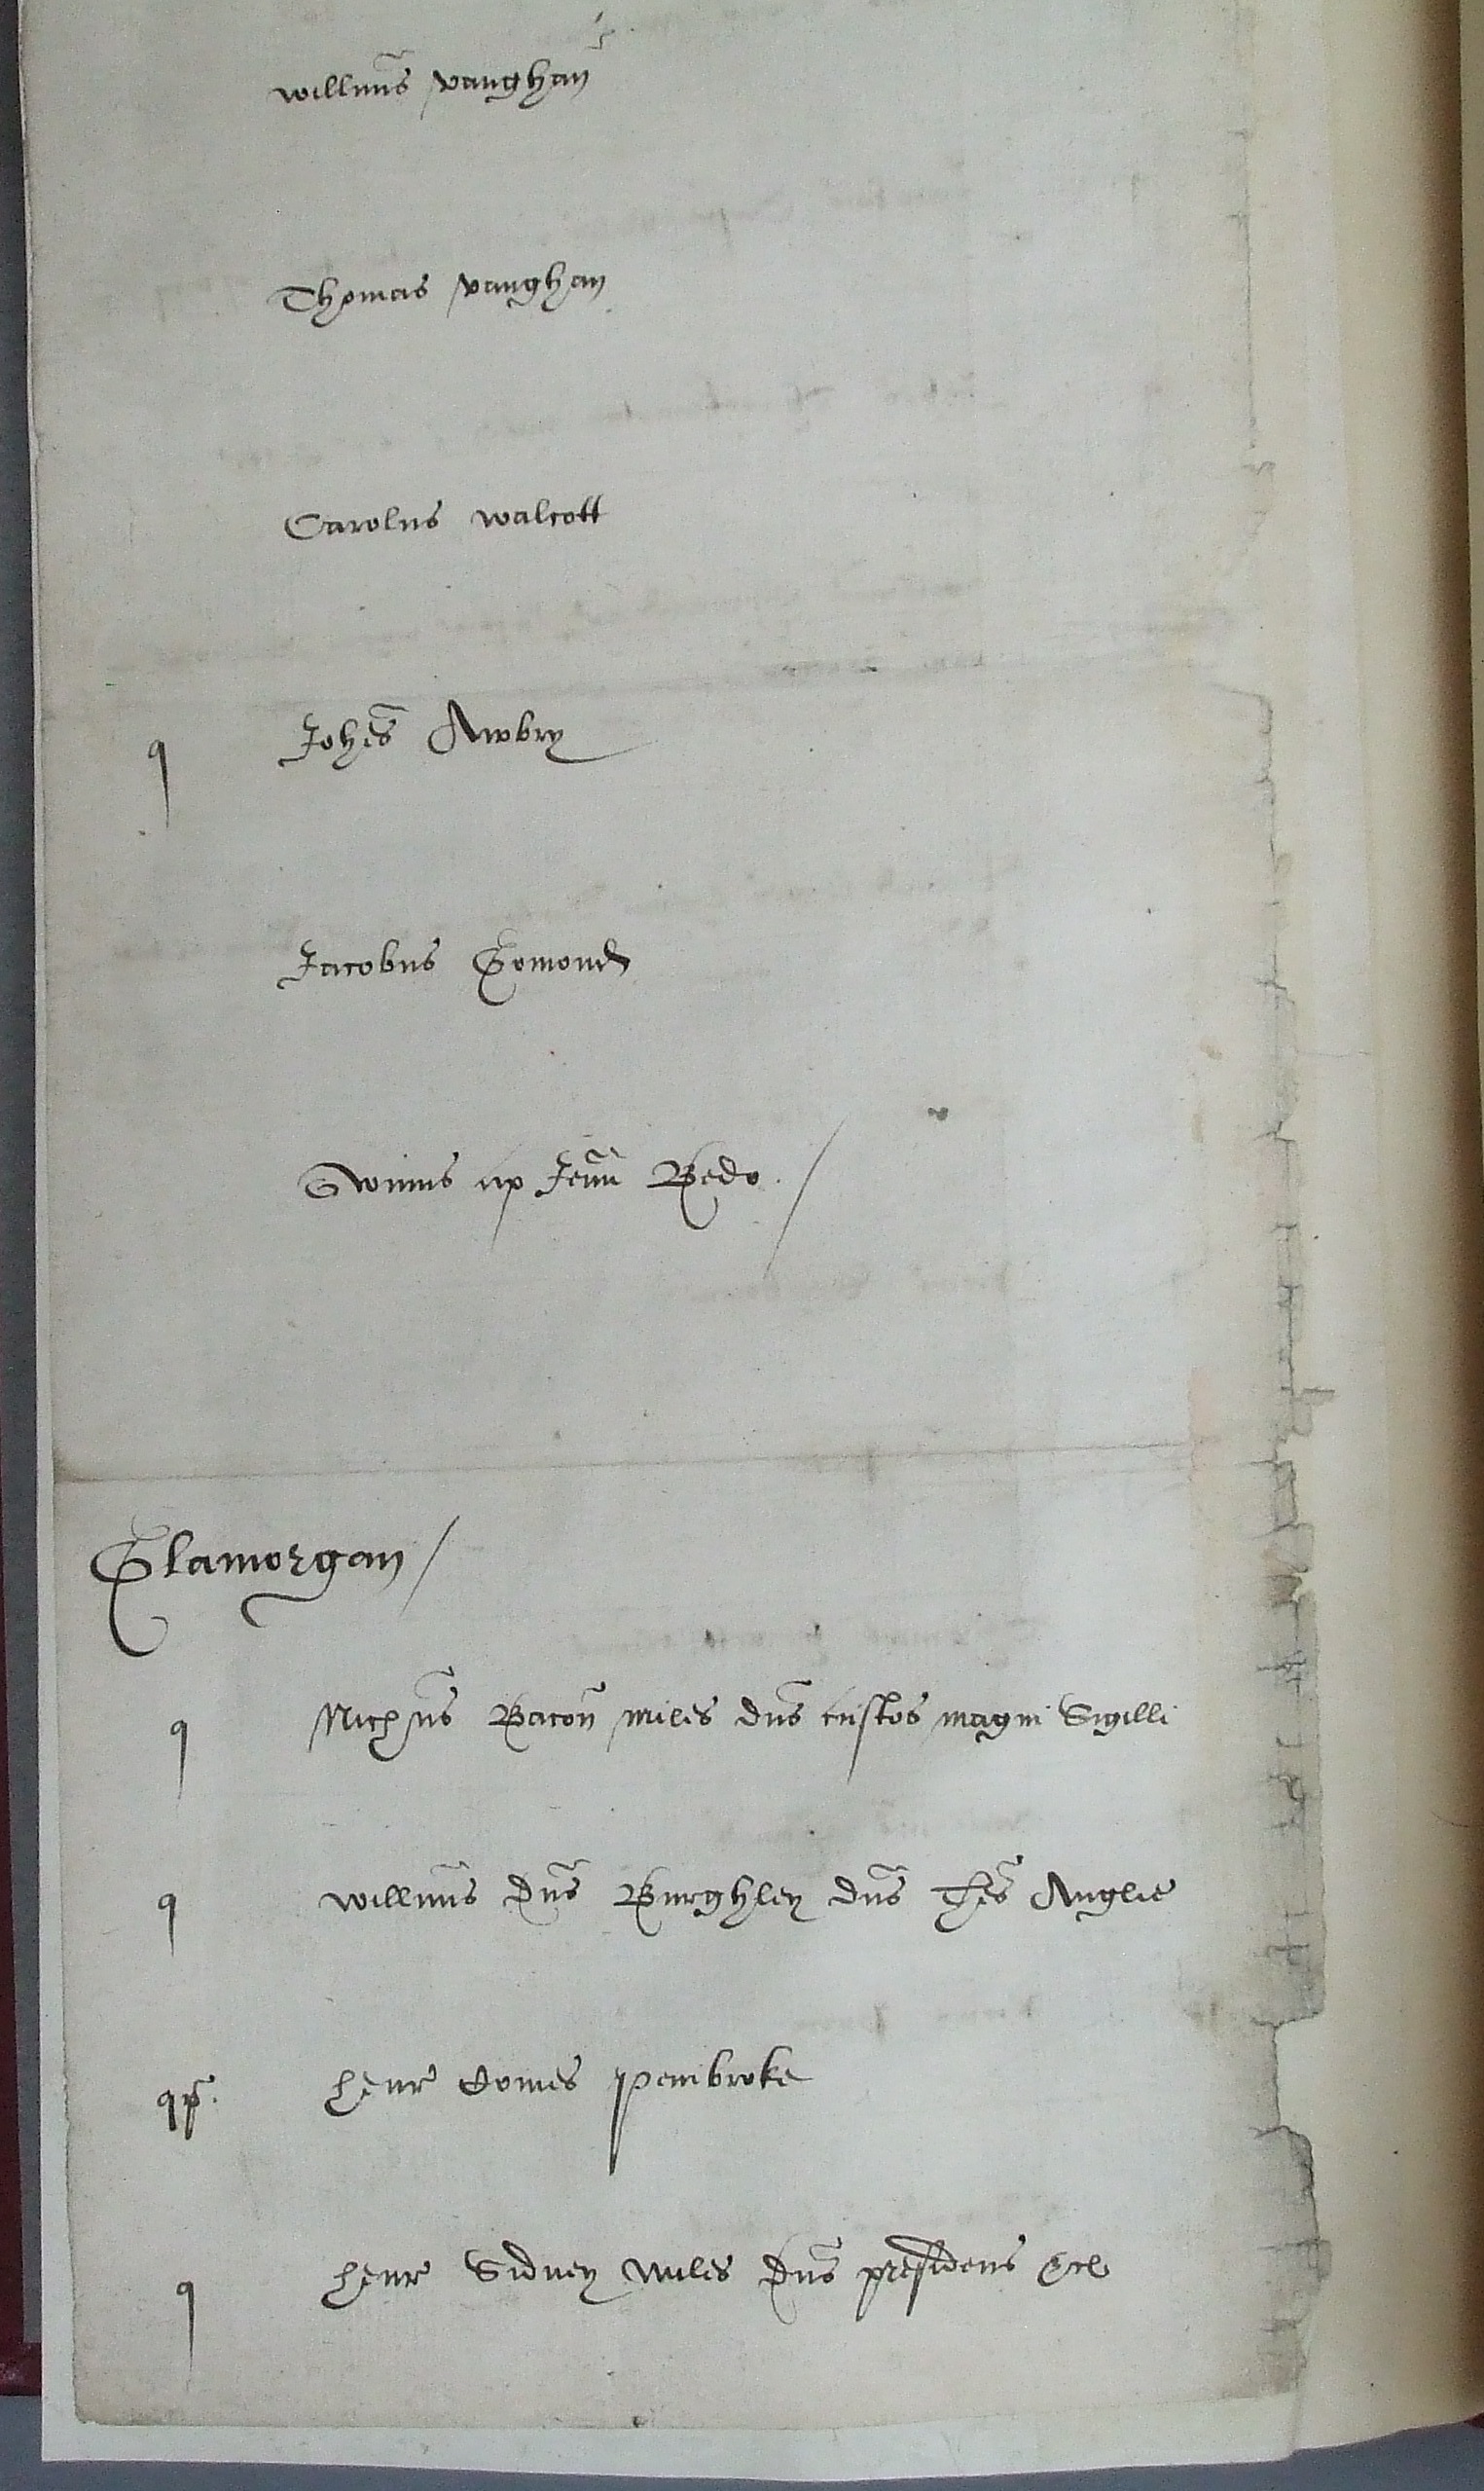 Willms Vaughan
Thomas Vaughan
Carolus Walcott
q Johes Awbry
Jacobus Gomond
ap Jeun Bedo /
Glamorgan /
q Nichus Bacon miles dns custos magni Sigilli
q Willms dns Burghley dns Thes Anglie
qr. Henr Comes Pembroke
q Henr Sidney miles dns presidens &c